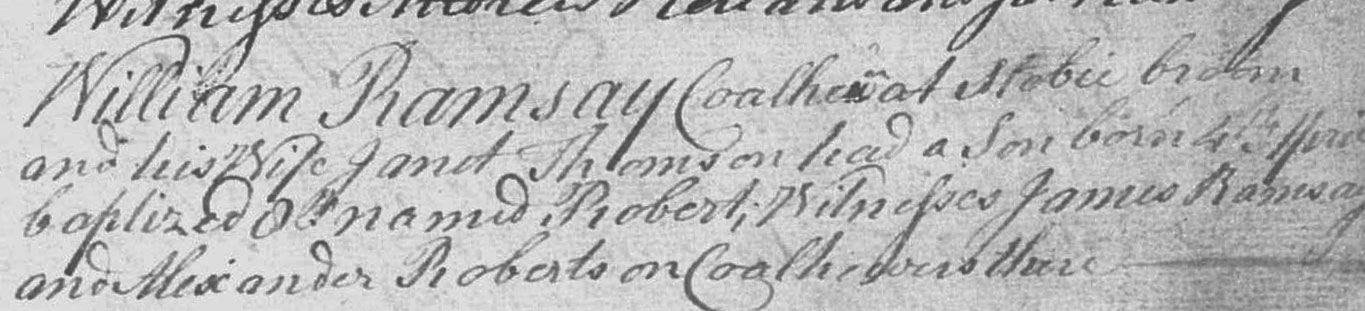 Witnesses
William Ramsay Coalhewr at Stobie broom
and his Wife Janet Thomson had a Son born 4th April
baptized 8th named Robert; Witnesses James Ramsay
and Alexander Robertson Coalhewers there